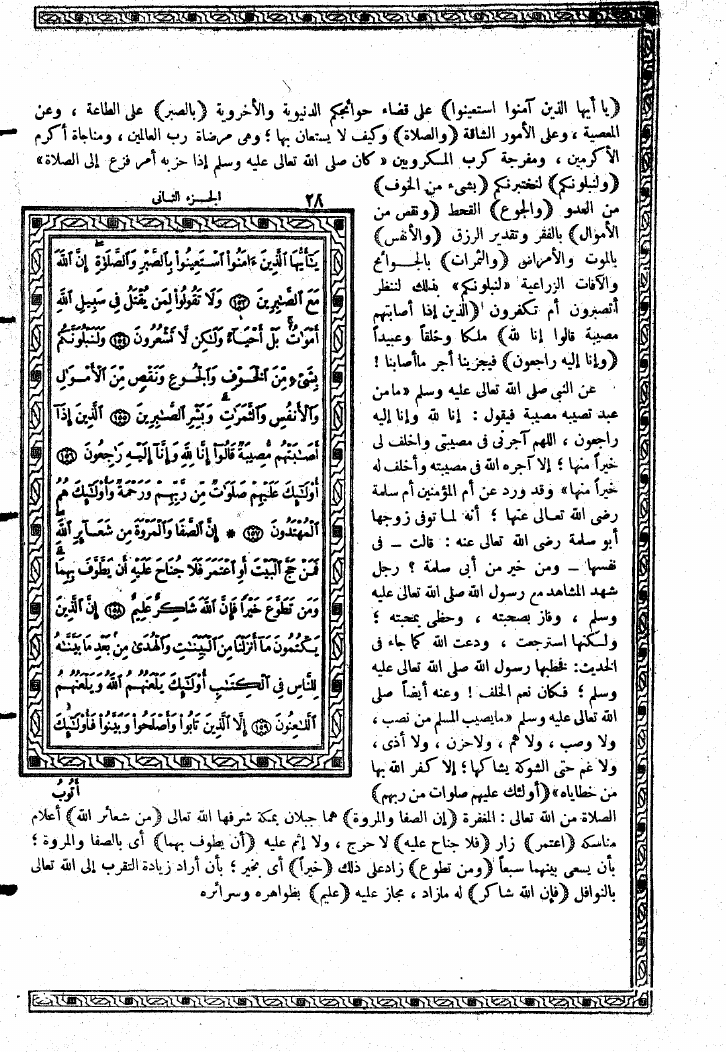 (يا أيها الذين آمنوا استعينوا) على قضاء حوائجكم الدنيوية والأخروية (بالصبر) على الطاعة ، وعن
المعصية ، وعلى الأمور الشاقة (والصلاة) وكيف لا يستعان بها ؛ وهى مرضاة رب العالمين ، ومناجاة أكرم
الأكرمين ، ومفرجة كرب المكروبين «كان صلى الله تعالى عليه وسلم إذا حزبه أمر فزع إلى الصلاة»
(ولنبلونكم) لنختبرنكم (بشىء من الخوف)
من العدو (والجوع) القحط (ونقص من
الأموال) بالفقر وتقدير الرزق (والأنفس)
بالموت والأمراض (والثمرات) بالجوائح
والآفات الزراعية «لنبلونكم» بذلك لننظر
أتصبرون أم تكفرون (الذين إذا أصابتهم
مصيبة قالوا إنا لله) ملكا وخلقاً وعبيداً
(وإنا إليه راجعون) فيجزينا أجر ماأصابنا !
عن النبى صلى الله تعالى عليه وسلم «مامن
عبد تصيبه مصيبة فيقول : إنا لله وإنا إليه
راجعون ، اللهم آجرنى فى مصيبتى واخلف لى
خيراً منها ؛ إلا آجره الله فى مصيبته وأخلف له
خيراً منها» وقد ورد عن أم المؤمنين أم سلمة
رضى الله تعالى عنها ؛ أنه لما توفى زوجها
أبو سلمة رضى الله تعالى عنه : قالت – فى
نفسها – ومن خير من أبى سلمة ؟ رجل
شهد المشاهد مع رسول الله صلى الله تعالى عليه
وسلم ، وفاز بصحبته ، وحظى بمحبته ؛
ولكنها استرجعت ، ودعت الله كما جاء فى
الحديث: فخطبها رسول الله صلى الله تعالى عليه
وسلم ؛ فكان نعم الخلف ! وعنه أيضاً صلى
الله تعالى عليه وسلم «مايصيب المسلم من نصب ،
ولا وصب ، ولا هم ، ولاحزن ، ولا أذى ،
ولا غم حتى الشوكة يشاكها ؛ إلا كفر الله بها
من خطاياه» (أولئك عليهم صلوات من ربهم)
الصلاة من الله تعالى : المغفرة (إن الصفا والمروة) هما جبلان بمكة شرفها الله تعالى (من شعائر الله) أعلام
مناسكه (اعتمر) زار (فلا جناح عليه) لا حرج ، ولا إثم عليه (أن يطوف بهما) أى بالصفا والمروة ؛
بأن يسعى بينهما سبعاً (ومن تطوع) زادعلى ذلك (خيراً) أى بخير ؛ بأن أراد زيادة التقرب إلى الله تعالى
بالنوافل (فإن الله شاكر) له مازاد ، مجاز عليه (عليم) بظواهره وسرائره
٢٨ الجزء الثانى
يَٰٓأَيُّهَا ٱلَّذِينَ ءَامَنُوا۟ ٱسْتَعِينُوا۟ بِٱلصَّبْرِ وَٱلصَّلَوٰةِ إِنَّ ٱللَّهَ
مَعَ ٱلصَّٰبِرِينَ ١٥٣ وَلَا تَقُولُوا۟ لِمَن يُقْتَلُ فِى سَبِيلِ ٱللَّهِ
أَمْوَٰتٌۢ بَلْ أَحْيَآءٌ وَلَٰكِن لَّا تَشْعُرُونَ ١٥٤ وَلَنَبْلُوَنَّكُم
بِشَىْءٍ مِّنَ ٱلْخَوْفِ وَٱلْجُوعِ وَنَقْصٍ مِّنَ ٱلْأَمْوَٰلِ
وَٱلْأَنفُسِ وَٱلثَّمَرَٰتِ وَبَشِّرِ ٱلصَّٰبِرِينَ ١٥٥ ٱلَّذِينَ إِذَآ
أَصَٰبَتْهُم مُّصِيبَةٌ قَالُوٓا۟ إِنَّا لِلَّهِ وَإِنَّآ إِلَيْهِ رَٰجِعُونَ ١٥٦
أُو۟لَٰٓئِكَ عَلَيْهِمْ صَلَوَٰتٌ مِّن رَّبِّهِمْ وَرَحْمَةٌ وَأُو۟لَٰٓئِكَ هُمُ
ٱلْمُهْتَدُونَ ١٥٧ * إِنَّ ٱلصَّفَا وَٱلْمَرْوَةَ مِن شَعَآئِرِ ٱللَّهِ
فَمَنْ حَجَّ ٱلْبَيْتَ أَوِ ٱعْتَمَرَ فَلَا جُنَاحَ عَلَيْهِ أَن يَطَّوَّفَ بِهِمَا
وَمَن تَطَوَّعَ خَيْرًا فَإِنَّ ٱللَّهَ شَاكِرٌ عَلِيمٌ ١٥٨ إِنَّ ٱلَّذِينَ
يَكْتُمُونَ مَآ أَنزَلْنَا مِنَ ٱلْبَيِّنَٰتِ وَٱلْهُدَىٰ مِنۢ بَعْدِ مَا بَيَّنَّٰهُ
لِلنَّاسِ فِى ٱلْكِتَٰبِ أُو۟لَٰٓئِكَ يَلْعَنُهُمُ ٱللَّهُ وَيَلْعَنُهُمُ
ٱللَّٰعِنُونَ ١٥٩ إِلَّا ٱلَّذِينَ تَابُوا۟ وَأَصْلَحُوا۟ وَبَيَّنُوا۟ فَأُو۟لَٰٓئِكَ
أَتُوبُ